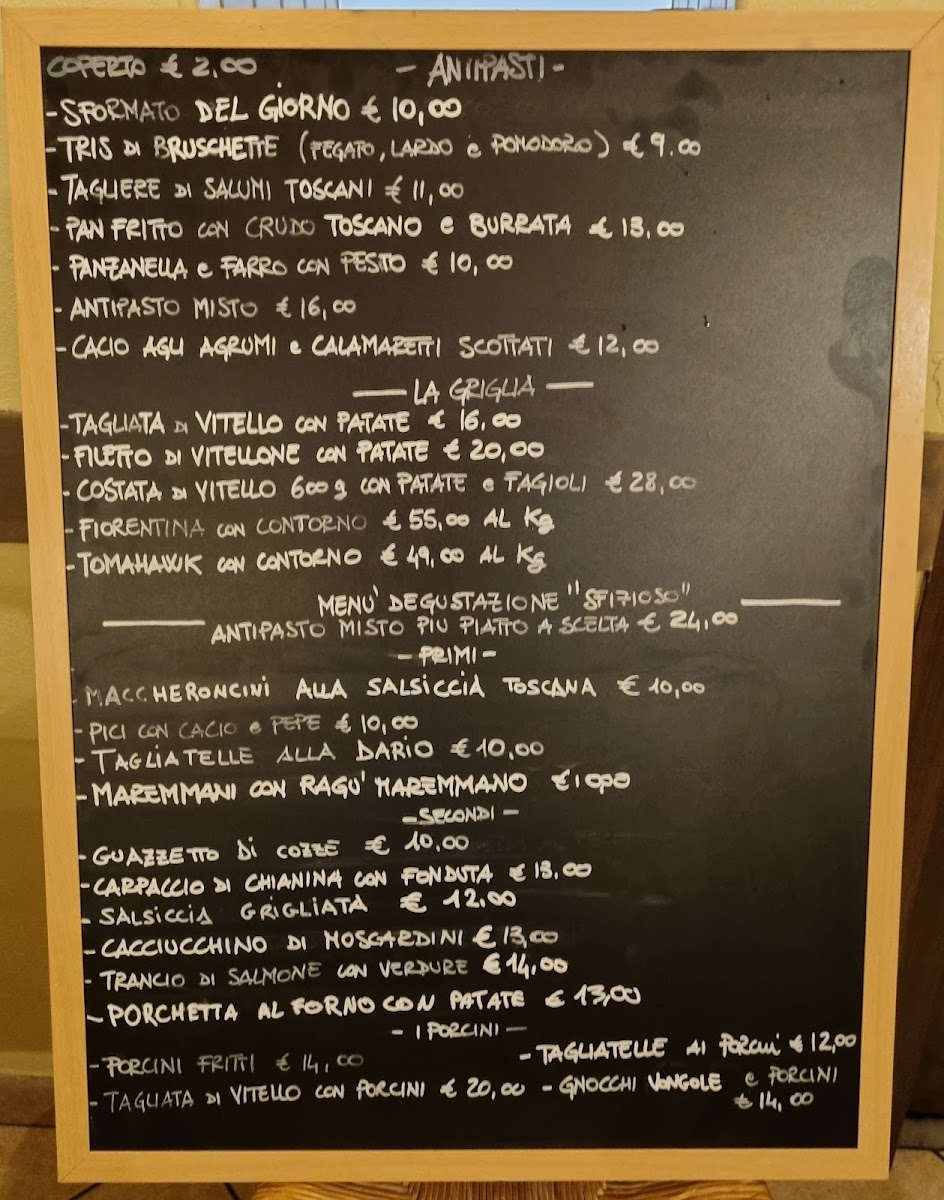 COPERTO € 2,00 - ANTIPASTI -
- SFORMATO DEL GIORNO € 10,00
- TRIS DI BRUSCHETTE (FEGATO, LARDO e POMODORO) € 9.00
- TAGLIERE DI SALUMI TOSCANI € 11,00
- PAN FRITTO CON CRUDO TOSCANO e BURRATA € 13,00
- PANZANELLA e FARRO CON PESTO € 10,00
- ANTIPASTO MISTO € 16,00
- CACIO AGLI AGRUMI e CALAMARETTI SCOTTATI € 12,00
— LA GRIGLIA —
- TAGLIATA DI VITELLO CON PATATE € 16,00
- FILETTO DI VITELLONE CON PATATE € 20,00
- COSTATA DI VITELLO 600 g CON PATATE e FAGIOLI € 28,00
- FIORENTINA CON CONTORNO € 55,00 AL Kg
- TOMAHAWK CON CONTORNO € 49,00 AL Kg
MENU' DEGUSTAZIONE "SFIZIOSO"
ANTIPASTO MISTO PIU PIATTO A SCELTA € 24,00
- PRIMI -
- MACCHERONCINI ALLA SALSICCIA TOSCANA € 10,00
- PICI CON CACIO e PEPE € 10,00
- TAGLIATELLE ALLA DARIO € 10,00
- MAREMMANI CON RAGU' MAREMMANO € 10,00
- SECONDI -
- GUAZZETTO DI COZZE € 10.00
- CARPACCIO DI CHIANINA CON FONDUTA € 13,00
- SALSICCIA GRIGLIATA € 12,00
- CACCIUCCHINO DI MOSCARDINI € 13,00
- TRANCIO DI SALMONE CON VERDURE € 14,00
- PORCHETTA AL FORNO CON PATATE € 13,00
- I PORCINI -
- PORCINI FRITTI € 14,00
- TAGLIATA DI VITELLO CON PORCINI € 20,00
- TAGLIATELLE AI PORCINI € 12,00
- GNOCCHI VONGOLE e PORCINI
€ 14,00